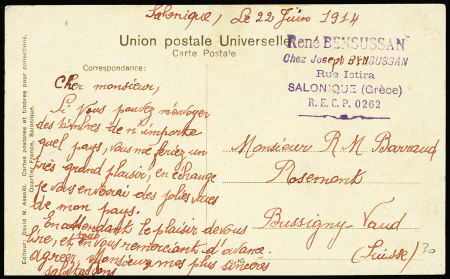 Salonique, Le 22 Juin 1914
Union postale Universelle
Carte Postale
René BENSUSSAN
Chez Joseph BENSUSSAN
Rue Istira
SALONIQUE (Grèce)
R.E.C.P. 0262
Correspondance:
Cher monsieur,
Si Vous pouvez m'envoyer
des timbres de n'importe
quel pays, vous me feriez un
très grand plaisir, en échange
je vous enverrai des jolies vues
de mon pays.
En attendant le plaisir de vous
lire, et en vous remerciant d'avance
agréez, Monsieur, mes plus sincères
salutations
Monsieur R M Barraud
Rosemont
Bussigny Vaud
(Suisse)
30
Editeur: David N. Assaël. Cartes postales et timbres pour collections.
Quartier Franc, Salonique.